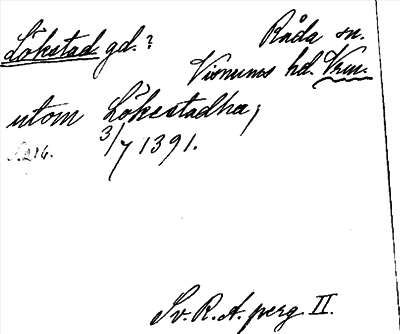 Lökstad gd.? Råda sn.
Visnums hd. Vrm.
utom Lökestadha,
3/7 1391.
S. 216.
Sv. R. A. perg. II.